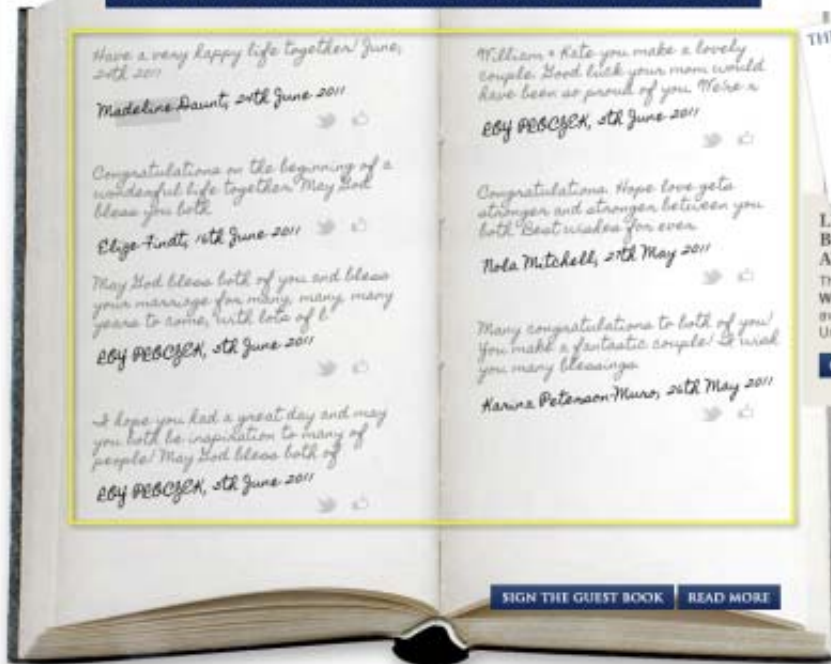 Have a very happy life together! June,
24th 2011
Madeline Daunt, 24th June 2011
Congratulations on the beginning of a
wonderful life together. May God
bless you both
Elize Findt, 16th June 2011
May God bless both of you and bless
your marriage for many, many, many
years to come, with lots of l
5th June 2011
I hope you had a great day and may
you both be inspiration to many of
people! May God bless both of
5th June 2011
William + Kate you make a lovely
couple. Good luck your mom would
have been so proud of you. We're
5th June 2011
Congratulations. Hope love gets
stronger and stronger between you
both. Best wishes for ever.
Nola Mitchell, 27th May 2011
Many congratulations to both of you!
You make a fantastic couple! I wish
you many blessings.
Karina Peterson-Muro, 26th May 2011
SIGN THE GUEST BOOK
READ MORE